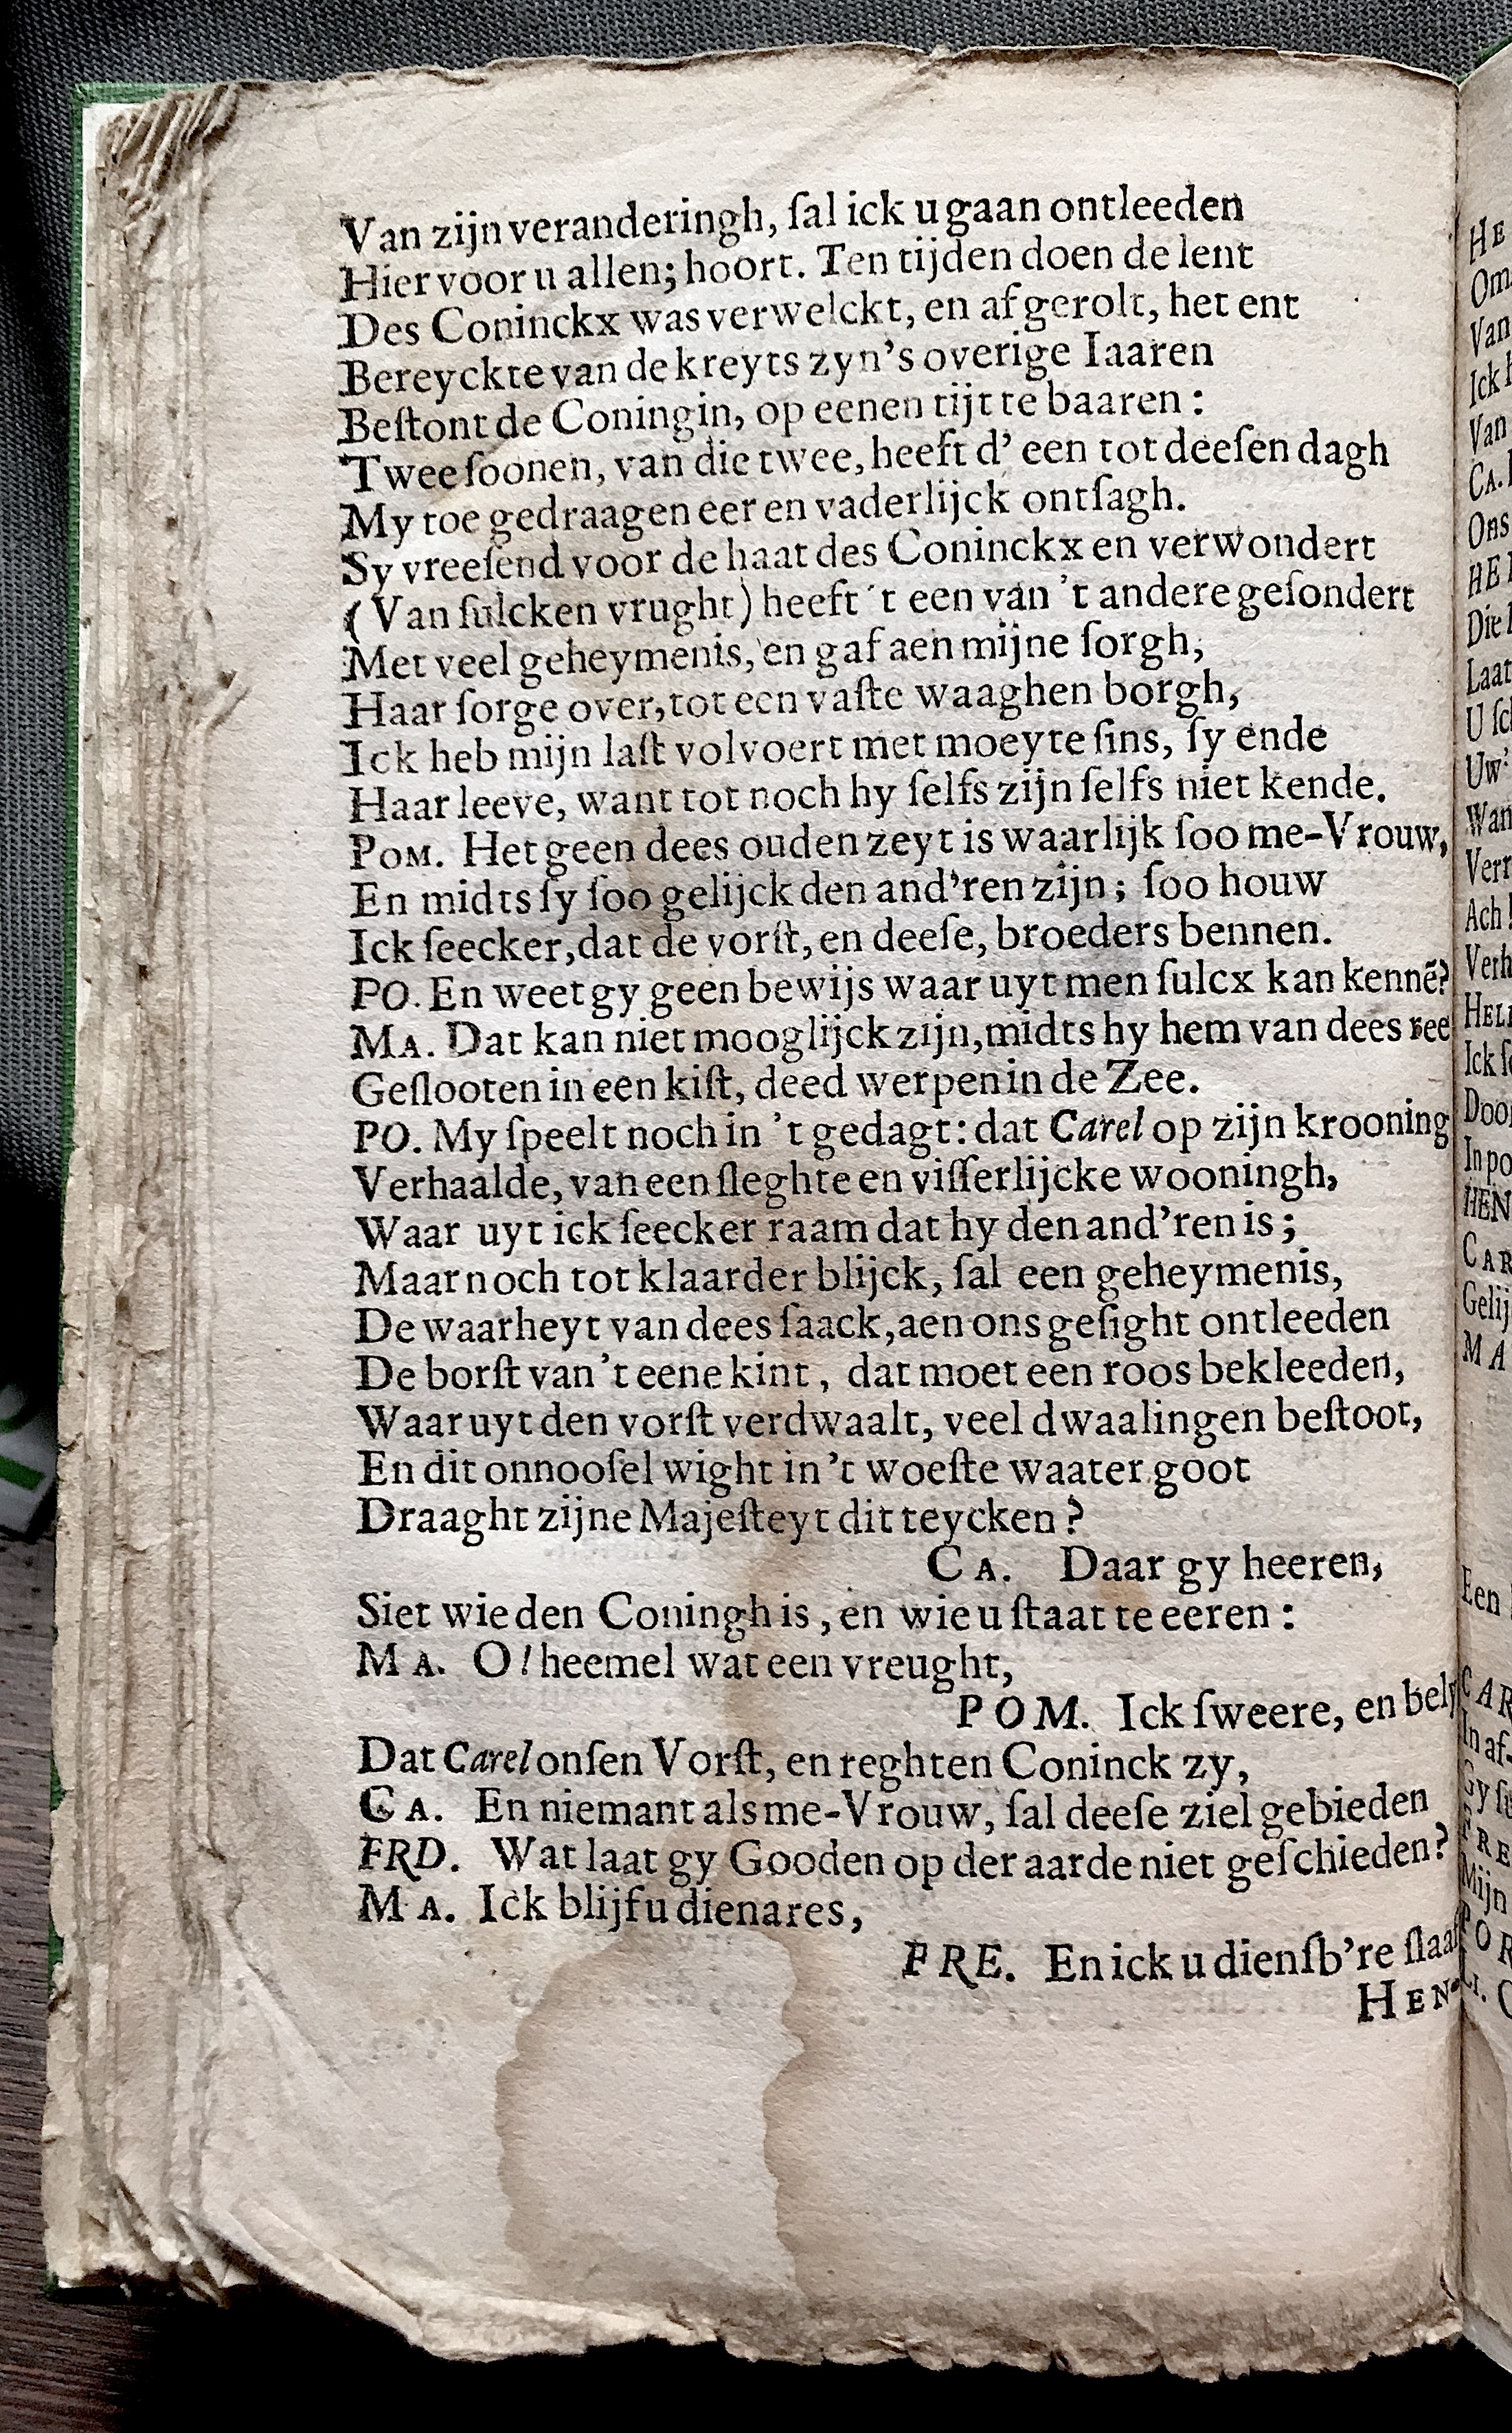 Van zijn veranderingh, ſal ick u gaan ontleeden
Hier voor u allen; hoort. Ten tijden doen de lent
Des Coninckx was verwelckt, en af gerolt, het ent
Bereyckte van de kreyts zyn's overige Iaaren
Beſtont de Coningin, op eenen tijt te baaren :
Twee ſoonen, van die twee, heeft d' een tot deeſen dagh
My toe gedraagen eer en vaderlijck ontſagh.
Sy vreeſend voor de haat des Coninckx en verwondert
( Van ſulcken vrught) heeft 't een van 't andere geſondert
Met veel geheymenis, en gaf aen mijne ſorgh,
Haar ſorge over, tot een vaſte waaghen borgh,
Ick heb mijn laſt volvoert met moeyte ſins, ſy ende
Haar leeve, want tot noch hy ſelfs zijn ſelfs niet kende.
POM. Het geen dees ouden zeyt is waarlijk ſoo me-Vrouw,
En midts ſy ſoo gelijck den and'ren zijn; ſoo houw
Ick ſeecker, dat de vorſt, en deeſe, broeders bennen.
PO. En weet gy geen bewijs waar uyt men ſulcx kan kennē?
MA. Dat kan niet mooglijck zijn, midts hy hem van dees ree
Geſlooten in een kiſt, deed werpen in de Zee.
PO. My ſpeelt noch in 't gedagt: dat Carel op zijn krooning
Verhaalde, van een ſleghte en viſſerlijcke wooningh,
Waar uyt ick ſeecker raam dat hy den and'ren is;
Maar noch tot klaarder blijck, ſal een geheymenis,
De waarheyt van dees ſaack, aen ons geſight ontleeden
De borſt van 't eene kint, dat moet een roos bekleeden,
Waar uyt den vorſt verdwaalt, veel dwaalingen beſtoot,
En dit onnooſel wight in 't woeſte waater goot
Draaght zijne Majeſteyt dit teycken?
CA. Daar gy heeren,
Siet wie den Coningh is, en wie u ſtaat te eeren :
MA. O! heemel wat een vreught,
POM. Ick ſweere, en bely
Dat Carel onſen Vorſt, en reghten Coninck zy,
CA. En niemant als me-Vrouw, ſal deeſe ziel gebieden
FRD. Wat laat gy Gooden op der aarde niet geſchieden?
MA. Ick blijf u dienares,
FRE. En ick u dienſb're ſlaaf
HEN-